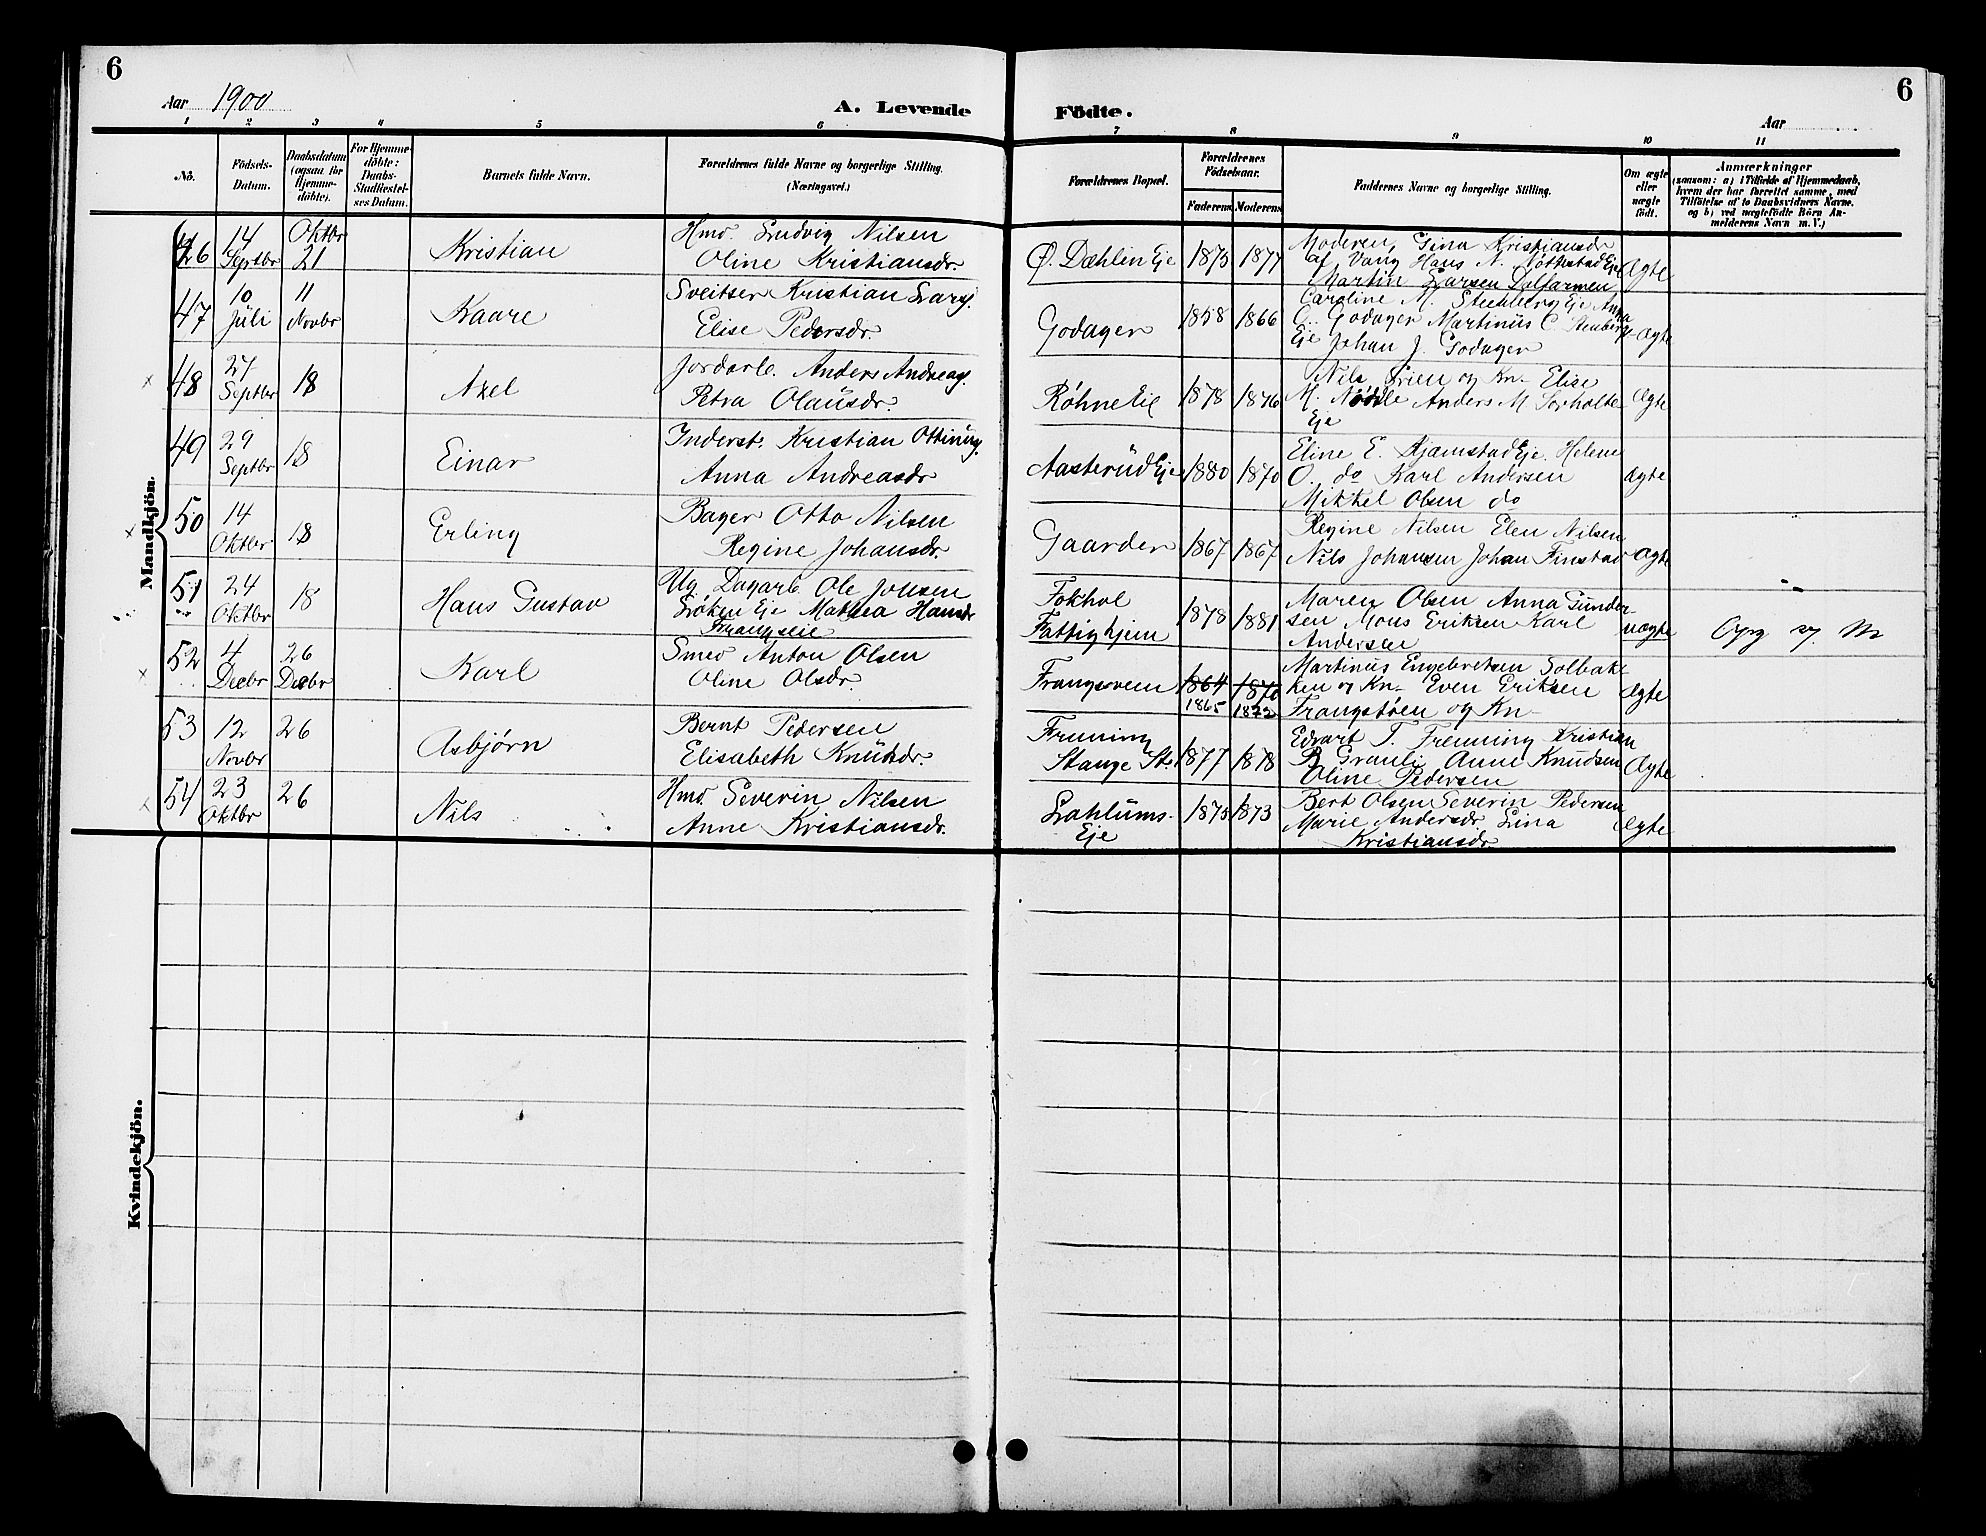 6
6
Aar 1900
A. Levende Födte.
Aar
1 2 3 4 5 6 7 8 9 10 11
No.
Födsels-Datum.
Daabsdatum (ogsaa for Hjemme-döbte).
For Hjemme-döbte: Daabs-Stadfæstel-ses Datum.
Barnets fulde Navn.
Forældrenes fulde Navne og borgerlige Stilling. (Næringsvei.)
Forældrenes Bopæl.
Forældrenes Födselsaar.
Faderens Moderens
Faddernes Navne og borgerlige Stilling.
Om ægte eller uægte födt.
Anmærkninger
(saasom: a) i Tilfælde af Hjemmedaab,
hvem der har forrettet samme, med
Tilföielse af to Daabsvidners Navne,
og b) ved uægtefödte Börn An-
melderens Navn m. V.)
Mandkjön.
46 14 Septbr Oktbr 21 Kristian
Hmd. Ludvig Nilsen
Oline Kristiansdr.
Ø. Dæhlin Eje 1875 1877
Moderen, Gina Kristiansdr
af Vang Hans N. Eje
Martin Larsen Dalfarmen
Ægte
47 10 Juli 11 Novbr Kaare
Sveitser Kristian Lars.
Elise Pedersdr.
Godager 1858 1866
Caroline M. Stenberg Eje Anna
C. Godager Martinus C. Stenberg
Eje Johan J. Godager
Ægte
48 27 Septbr 18 Axel
Jordarb. Anders Andreas.
Petra Olausdr.
Røhne Eie 1878 1876
Nils Lien og Kn- Elise
M. Anders M Sorholte
Eje
Ægte
49 29 Septbr 18 Einar
Inderst. Kristian Ottinus.
Anna Andreasdr
Aasterud Eje 1880 1870
Eline E. Hjamstad Eje. Helene
O. do Karl Andersen
Mikkel Olsen do
Ægte
50 14 Oktbr 18 Erling
Bager Otto Nilsen
Regine Johansdr.
Gaarder 1867 1867
Regine Nilsen Elen Nilsen
Nils Johansen Johan Finstad
Ægte
51 24 Oktbr 18 Hans Gustav
Ug. Dagarb. Ole Jonsen
Løken Eje Mathea Hansdr
Frangseie
Fokhol
Fattighjem 1878 1881
Maren Olsen Anna Gunder-
sen Mons Eriksen Karl
Andersen
uægte
Opg. af M
52 4 Decbr 26 Decbr Karl
Smed Anton Olsen
Oline Olsdr.
Frangsveen 1864 1870
1865 1872
Martinus Engebretsen Solbak-
ken og Kn- Even Eriksen
Frangstøen og Kn-
Ægte
53 12 Novbr 26 Asbjørn
Bernt Pedersen
Elisabeth Knutsdr.
Frenning
Stange St. 1877 1878
Edvart T. Frenning Kristian
B Granli Anne Knudsen
Oline Pedersen
Ægte
54 23 Oktbr 26 Nils
Hmd. Severin Nilsen
Anne Kristiansdr.
Lahlums-
Eje 1875 1873
Bert Olsen Severin Pedersen
Marie Andersdr Lina
Kristiansdr.
Ægte
Kvindekjön.